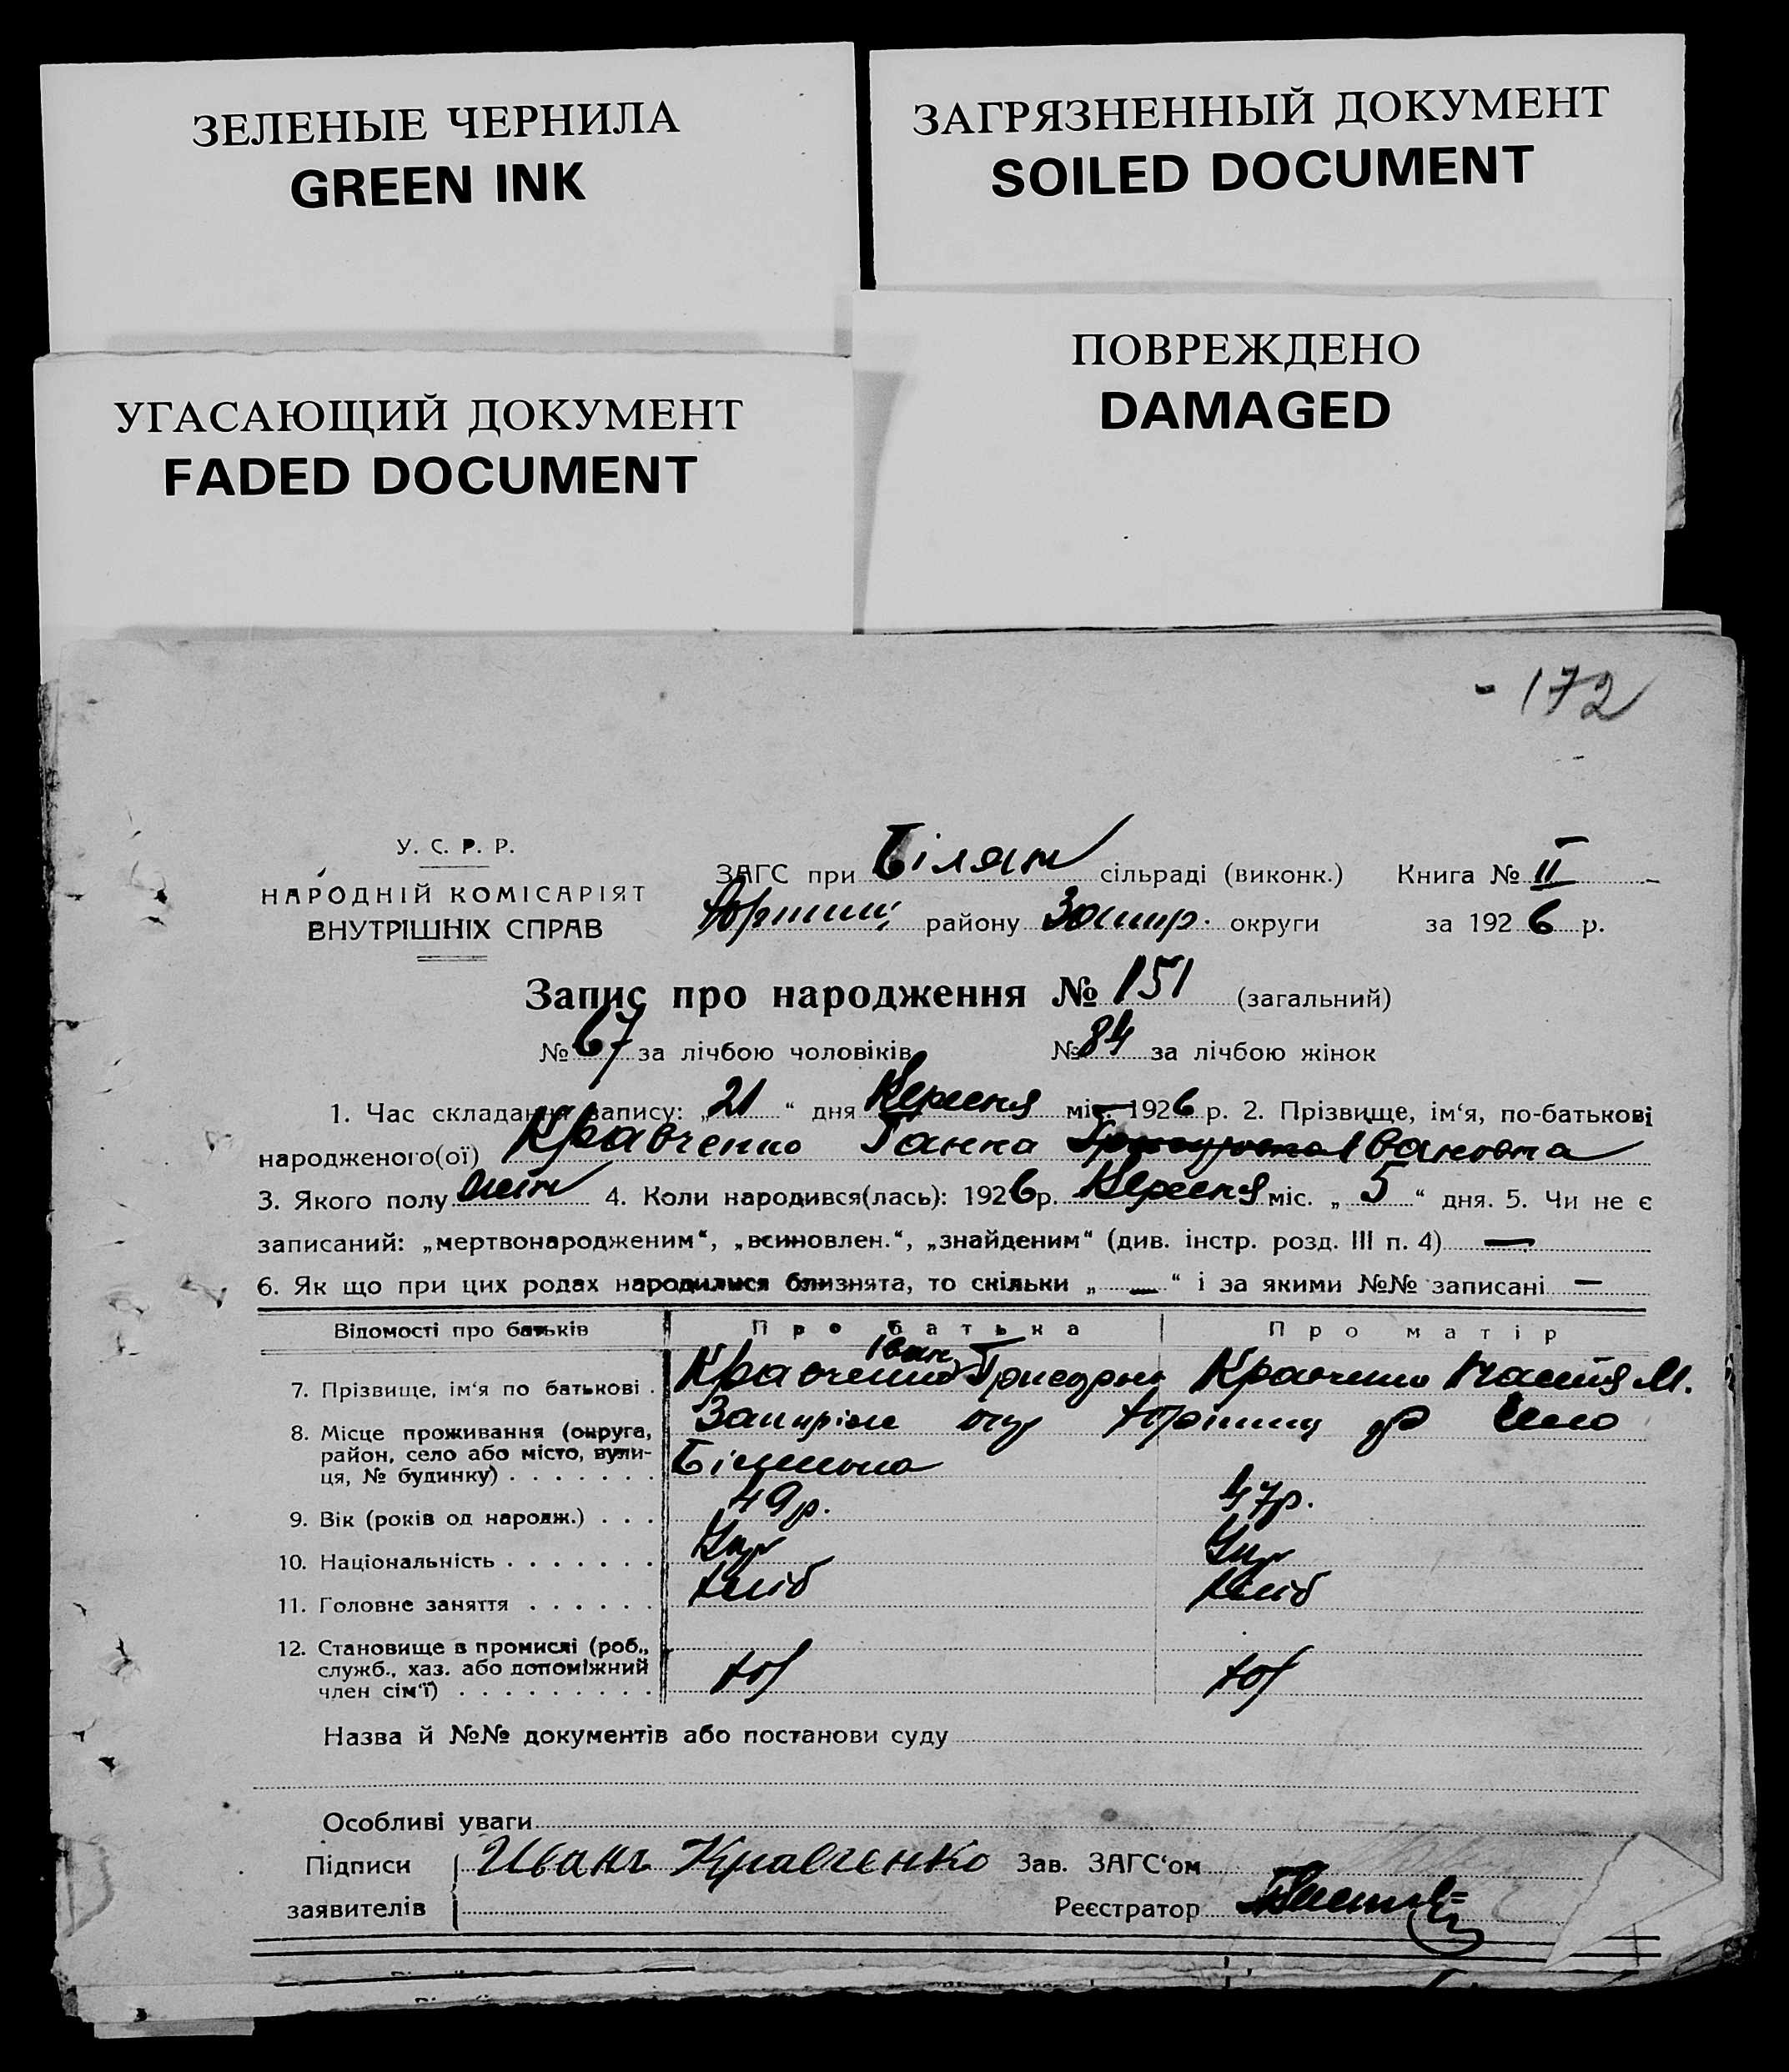 ЗЕЛЕНЫЕ ЧЕРНИЛА
GREEN INK
ЗАГРЯЗНЕННЫЙ ДОКУМЕНТ
SOILED DOCUMENT
УГАСАЮЩИЙ ДОКУМЕНТ
FADED DOCUMENT
ПОВРЕЖДЕНО
DAMAGED
- 172
У. С. Р. Р.
НАРОДНІЙ КОМІСАРІЯТ
ВНУТРІШНІХ СПРАВ
ЗАГС при Білян сільраді (виконк.) Книга № II
району Запор. округи за 1926 р.
Запис про народження № 151 (загальний)
№ 67 за лічбою чоловіків № 84 за лічбою жінок
1. Час складання запису: „21“ дня Вересня міс. 1926 р. 2. Прізвище, ім‘я, по-батькові
народженого(ої) Кравченко Ганна Івановна
3. Якого полу жін 4. Коли народився(лась): 1926 р. Вересня міс. „5“ дня. 5. Чи не є
записаний: „мертвонародженим“, „всиновлен.“, „знайденим“ (див. інстр. розд. III п. 4) —
6. Як що при цих родах народилися близнята, то скільки „—“ і за якими №№ записані —
Відомості про батьків Про батька Про матір
7. Прізвище, ім‘я по батькові . Кравченко Іван Григоров Кравченко Настя М.
8. Місце проживання (округа, район, село або місто, вулиця, № будинку) Запоріж окр село
9. Вік (років од народж.) . . . 49 р. 47 р.
10. Національність . . . . . . . Укр Укр
11. Головне заняття . . . . . . Хліб Хліб
12. Становище в промислі (роб., служб., хаз. або допоміжний член сім‘ї) . . . . . . . . .
Назва й №№ документів або постанови суду
Особливі уваги
Підписи Иванъ Кравченко Зав. ЗАГС‘ом
заявителів Реєстратор